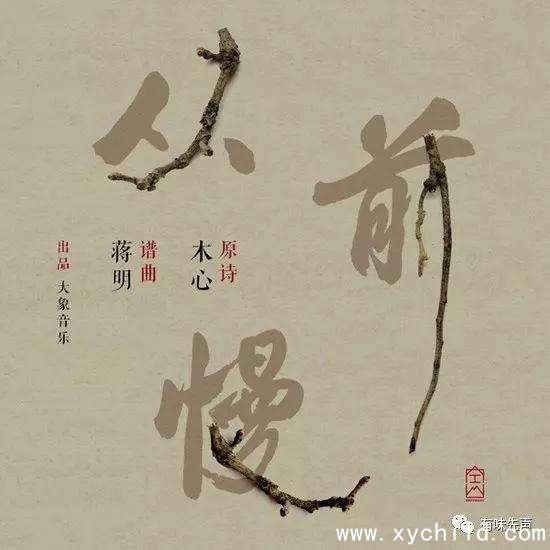 从前慢
原诗
木心
谱曲
蒋明
出品 大象音乐
有味先声
www.xychild.com